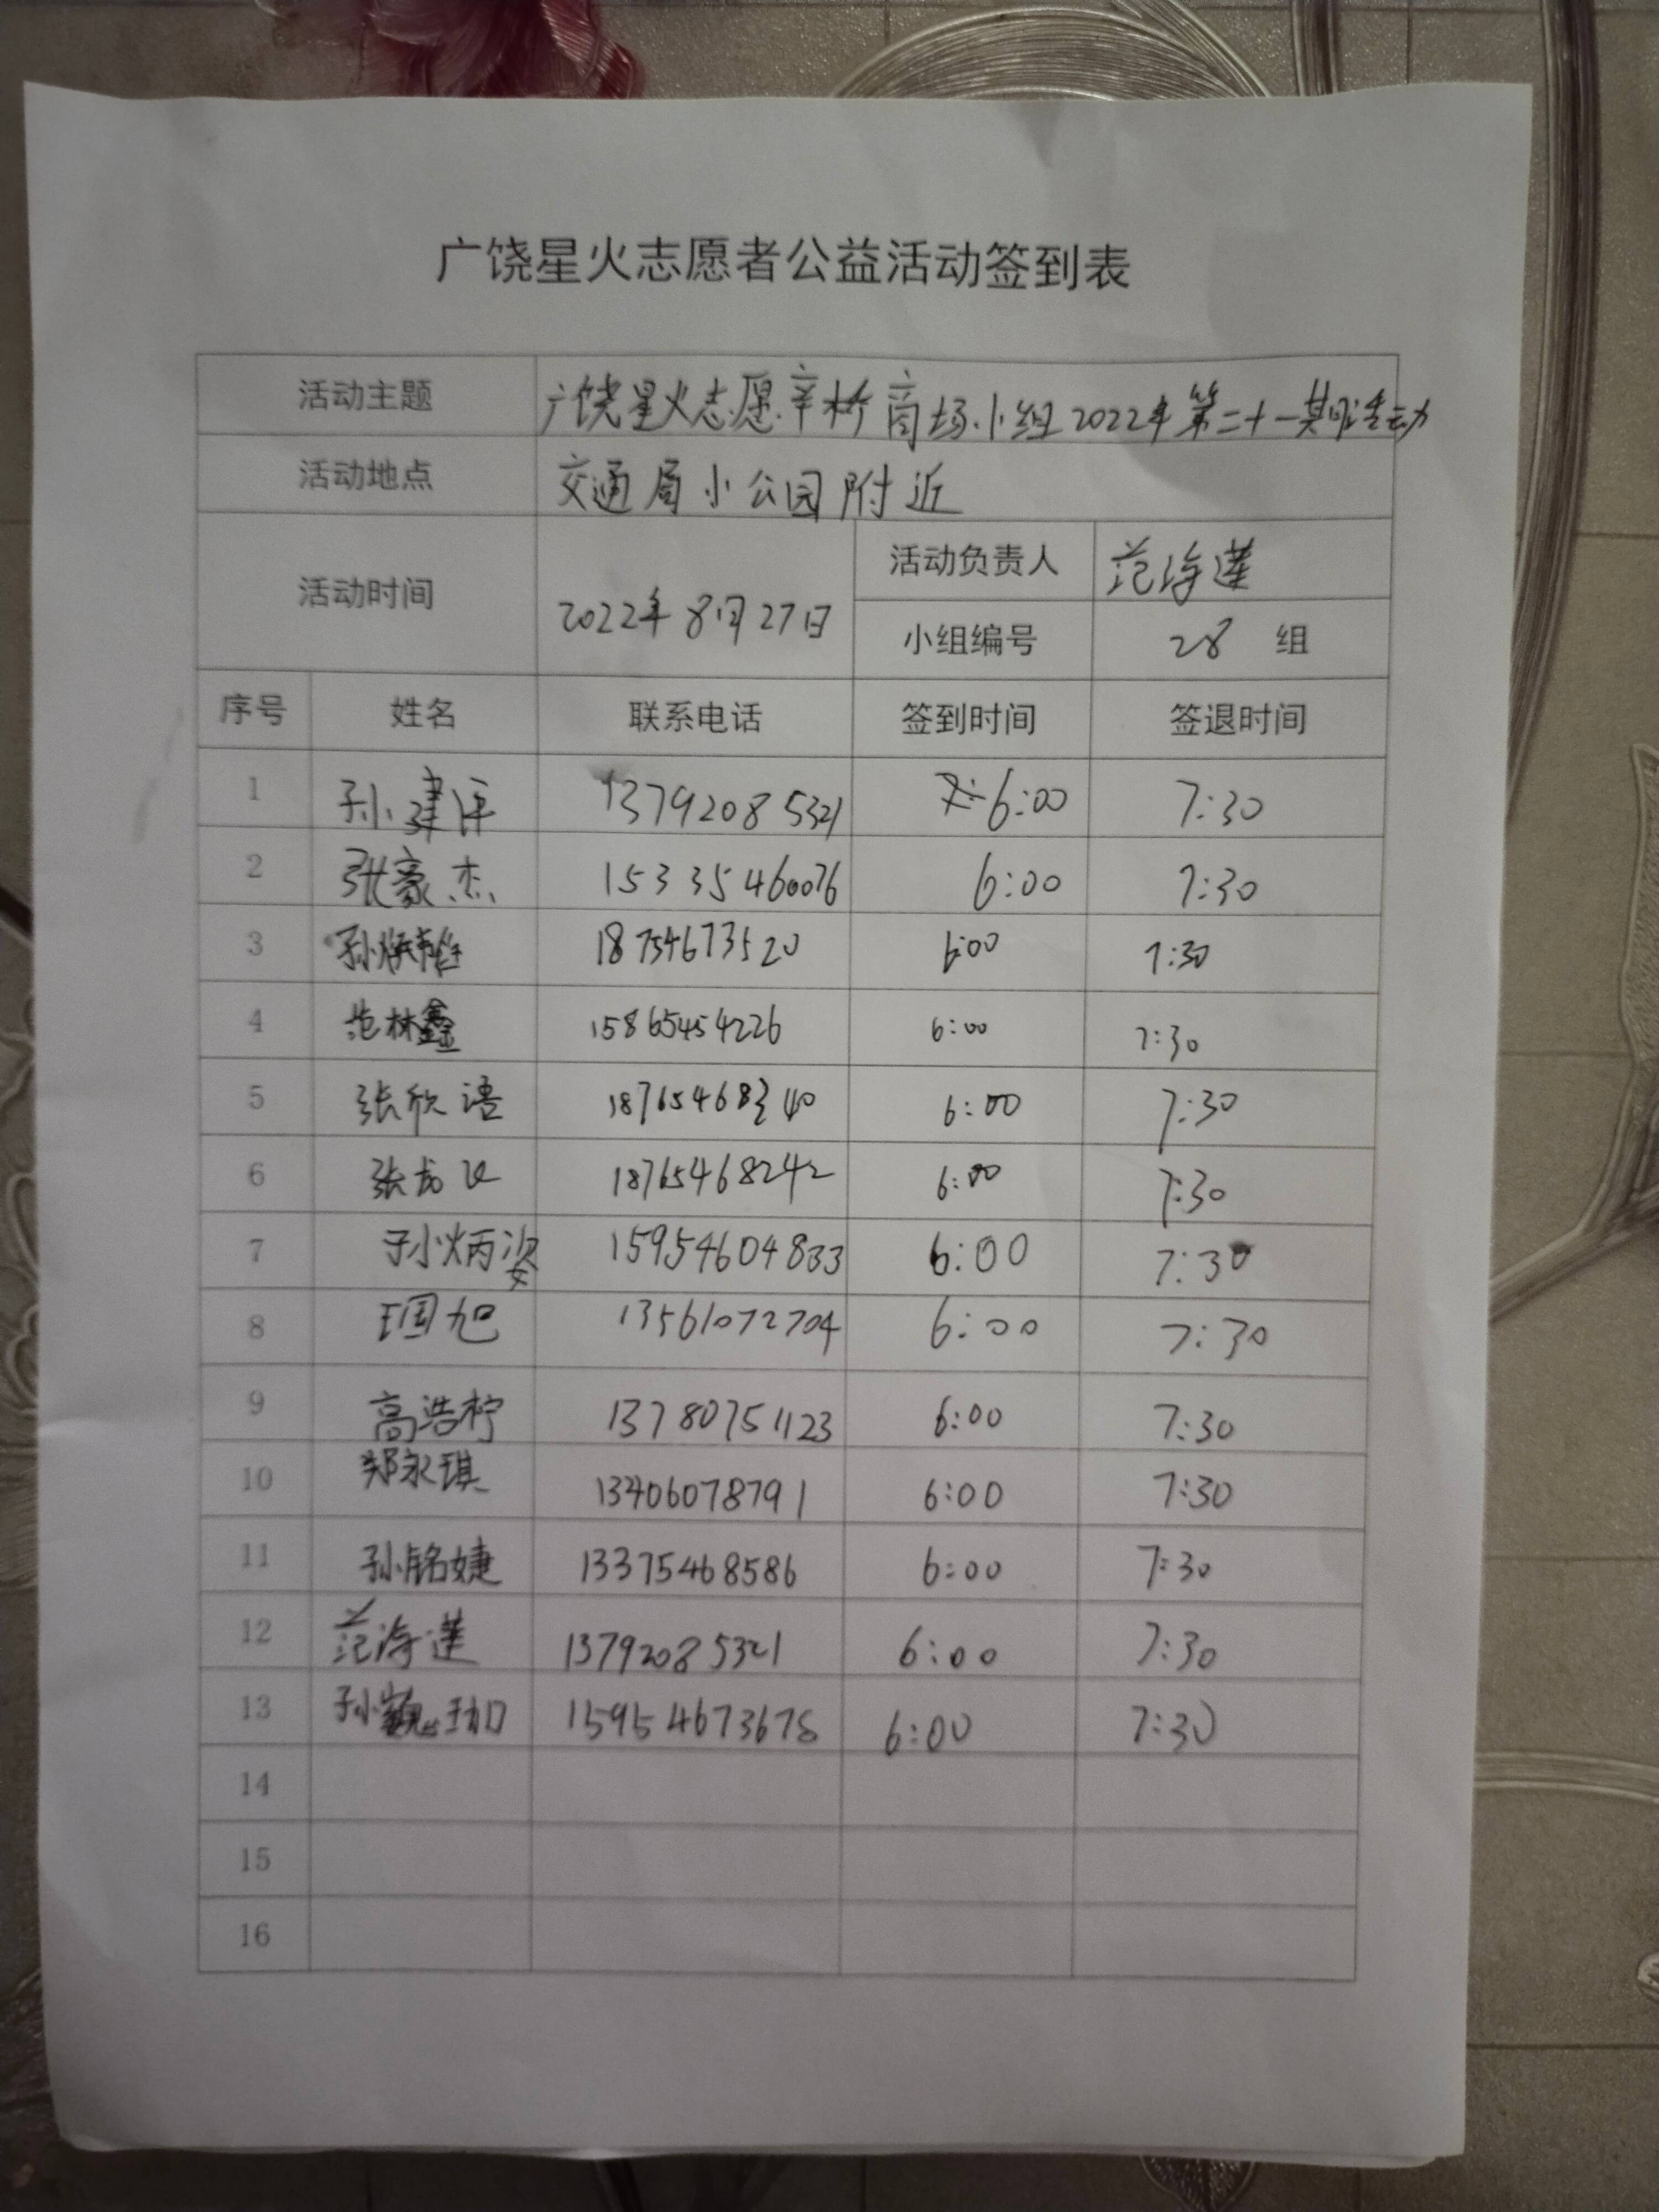 广饶星火志愿者公益活动签到表
活动主题 广饶星火志愿辛桥商场小组2022年第二十一期活动
活动地点 交通局小公园附近
活动时间 2022年8月27日 活动负责人 范海莲
小组编号 28 组
序号 姓名 联系电话 签到时间 签退时间
1 孙建洋 13792085321 6:00 7:30
2 张豪杰 15335460076 6:00 7:30
3 18754673520 6:00 7:30
4 范林鑫 15865454226 6:00 7:30
5 张欣语 6:00 7:30
6 张龙飞 18765468242 6:00 7:30
7 孙炳姿 15954604833 6:00 7:30
8 王国旭 13561072704 6:00 7:30
9 高浩柠 13780751123 6:00 7:30
10 郑永琪 13406078791 6:00 7:30
11 孙铭婕 13375468586 6:00 7:30
12 范海莲 13792085321 6:00 7:30
13 孙巍珈 15954673678 6:00 7:30
14
15
16